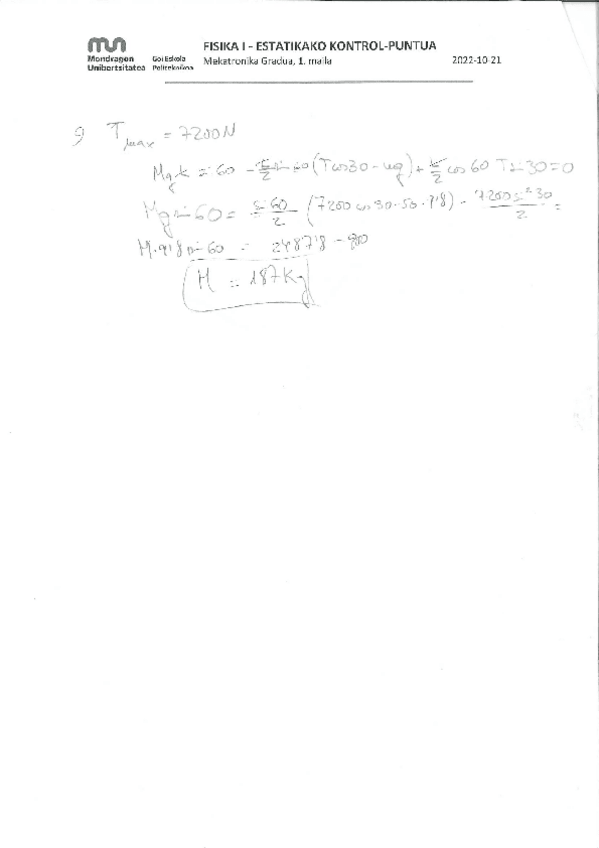 mun
Mondragon
Unibertsitatea
Goi Eskola
Politeknikoa
FISIKA I - ESTATIKAKO KONTROL-PUNTUA
Mekatronika Gradua, 1. maila
2022-10-21
T max = 7200N
Mg L sin 60 - L/2 sin 60 (T cos30 - mg) + L/2 cos 60 T sin 30 = 0
Mg sin 60 = sin 60/2 (7200 cos 30 - 50 · 9'8) - 7200 sin² 30/2 =
M · 9'8 sin 60 = 2487'8 - 900
M = 187 Kg